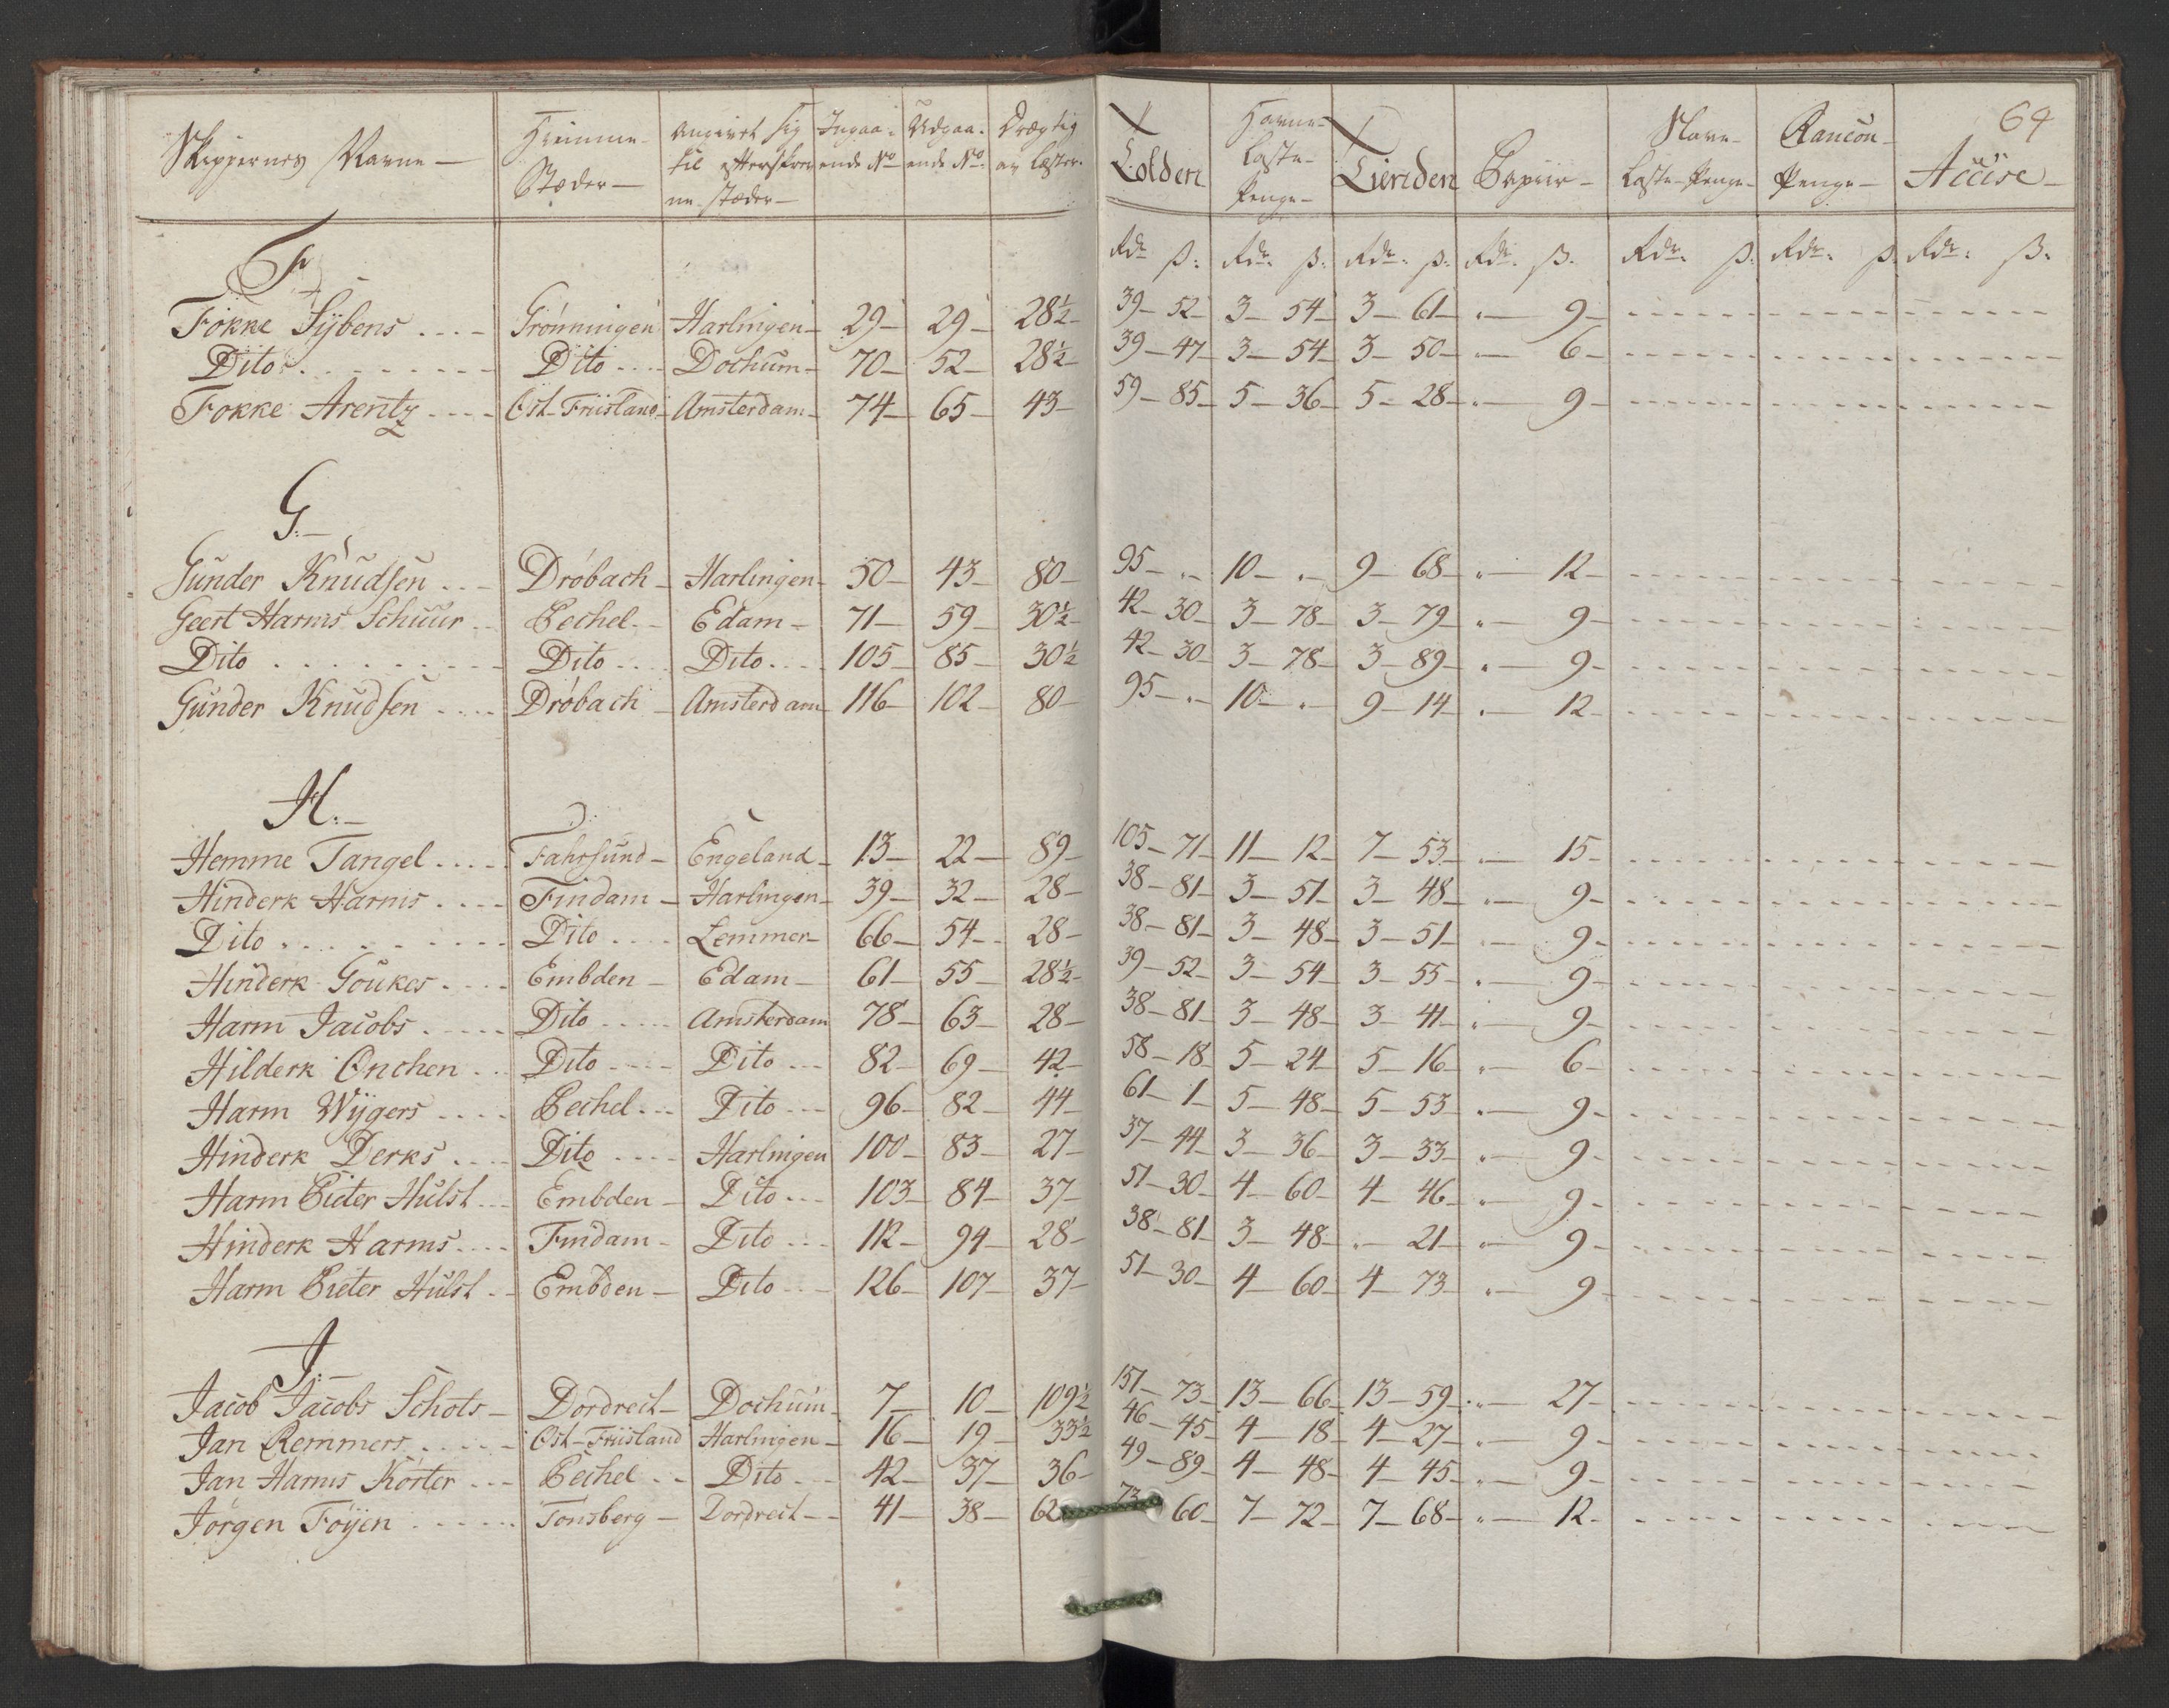 64
Skippernes Navne — Hiemme- Stæder — Angivet sig til efterskrevne stæder — Ingaaende No Udgaaende No Drægtig av Læster. Tolden Havne Laste- Penge — Tienden Papiir — Slave- Laste-Penge — Rancon- Penge — Accise —
Rdr ß. Rdr. ß. Rdr. ß. Rdr. ß. Rdr. ß. Rdr. ß. Rdr. ß.
F.
Fokke Sÿbens .... Grönningen Harlingen — 29 — 29 — 28½ — 39 — 52 — 3 — 54 — 3 — 61 — " — 9 —
Dito ........ Dito .... Dochum — 70 — 52 — 28½ — 39 — 47 — 3 — 54 — 3 — 50 — " — 6 —
Fokke Arentz .... Ost-Friisland — Amsterdam — 74 — 65 — 43 — 59 — 85 — 5 — 36 — 5 — 28 — " — 9 —
G. —
Gunder Knudsen ... Dröbach — Harlingen — 50 — 43 — 80 — 95 — " — 10 — " — 9 — 68 — " — 12 —
Geert Harms Schuur .. Pechel .. Edam — 71 — 59 — 30½ — 42 — 30 — 3 — 78 — 3 — 79 — " — 9 —
Dito ......... Dito .... Dito .... 105 — 85 — 30½ 42 — 30 — 3 — 78 — 3 — 89 — " — 9 —
Gunder Knudsen .... Dröbach — Amsterdam — 116 — 102 — 80 — 95 — " — 10 — " — 9 — 14 — " — 12 —
H. —
Hemme Tangel .... Fahrsund — Engeland — 13 — 22 — 89 — 105 — 71 — 11 — 12 — 7 — 53 — " — 15 —
Hinderk Harms .... Findam — Harlingen — 39 — 32 — 28 — 38 — 81 — 3 — 51 — 3 — 48 — " — 9 —
Dito ......... Dito .... Lemmer — 66 — 54 — 28 — 38 — 81 — 3 — 48 — 3 — 51 — " — 9 —
Hinderk Goukes .... Embden — Edam — 61 — 55 — 28½ — 39 — 52 — 3 — 54 — 3 — 55 — " — 9 —
Harm Jacobs ..... Dito .... Amsterdam 78 — 63 — 28 — 38 — 81 — 3 — 48 — 3 — 41 — " — 9 —
Hilderk Onchen .. Dito .... Dito ... 82 — 69 — 42 — 58 — 18 — 5 — 24 — 5 — 16 — " — 6 —
Harm Wÿgers .... Pechel ... Dito ... 96 — 82 — 44 — 61 — 1 — 5 — 48 — 5 — 53 — " — 9 —
Hinderk Derks .... Dito .... Harlingen 100 — 83 — 27 — 37 — 44 — 3 — 36 — 3 — 33 — " — 9 —
Harm Pieter Hulst ... Embden — Dito ... 103 — 84 — 37 — 51 — 30 — 4 — 60 — 4 — 46 — " — 9 —
Hinderk Harms .... Findam — Dito ... 112 — 94 — 28 — 38 — 81 — 3 — 48 — " — 21 — " — 9 —
Harm Pieter Hulst .. Embden — Dito ... 126 — 107 — 37 — 51 — 30 — 4 — 60 — 4 — 73 — " — 9 —
J. —
Jacob Jacobs Schots — Dordrect — Dochum — 7 — 10 — 109½ 151 — 73 — 13 — 66 — 13 — 59 — " — 27 —
Jan Remmers ..... Ost-Friisland Harlingen — 16 — 19 — 33½ 46 — 45 — 4 — 18 — 4 — 27 — " — 9 —
Jan Harms Körter ... Pechel .. Dito ... 42 — 37 — 36 — 49 — 89 — 4 — 48 — 4 — 45 — " — 9 —
Jörgen Föÿen ..... Tonsberg — Dordrect — 41 — 38 — 62 73 60 — 7 — 72 — 7 — 68 — " — 12 —